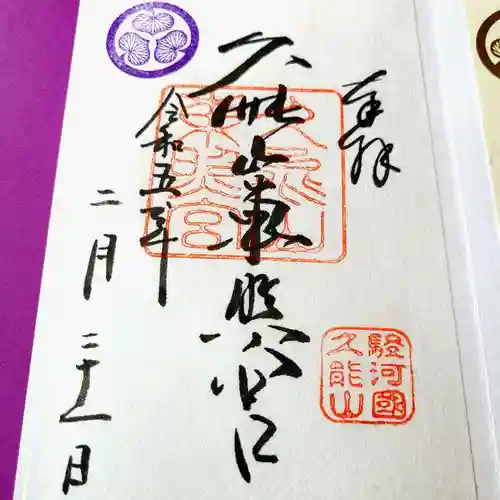 奉拝
久能山東照宮
令和五年
二月二十一日
久能山東照宮
駿河國
久能山